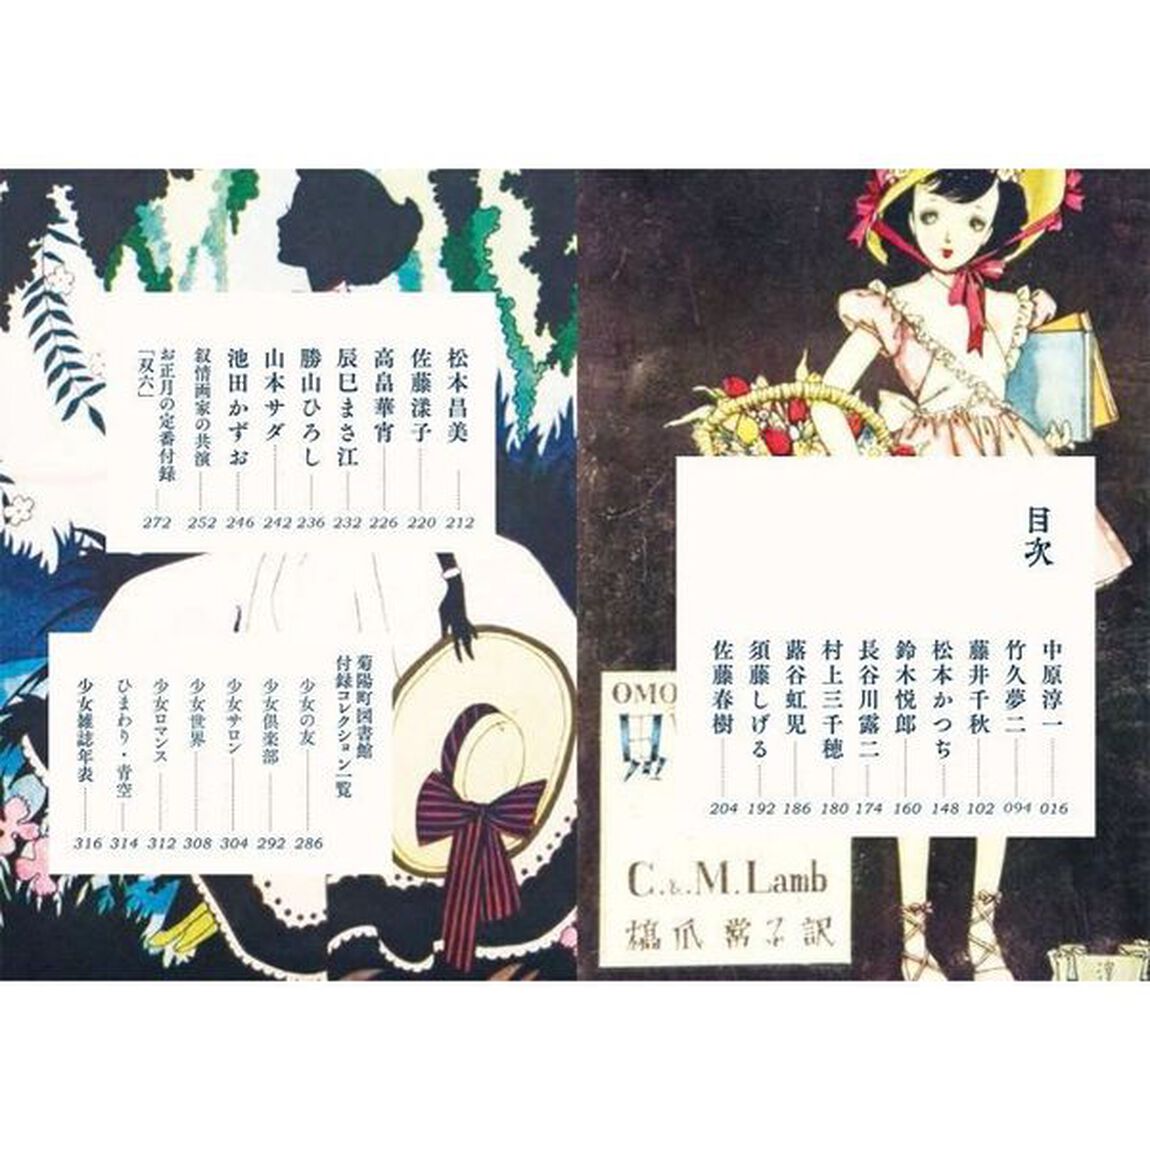 目次
中原淳一 016
竹久夢二 094
藤井千秋 102
松本かつぢ 148
鈴木悦郎 160
長谷川露二 174
村上三千穂 180
蕗谷虹児 186
須藤しげる 192
佐藤春樹 204
OMO
C.&.M.Lamb
橋爪常子訳
松本昌美 212
佐藤漾子 220
高畠華宵 226
辰巳まさ江 232
勝山ひろし 236
山本サダ 242
池田かずお 246
叙情画家の共演 252
お正月の定番付録
「双六」 272
菊陽町図書館
付録コレクション一覧
少女の友 286
少女倶楽部 292
少女サロン 304
少女世界 308
少女ロマンス 312
ひまわり・青空 314
少女雑誌年表 316